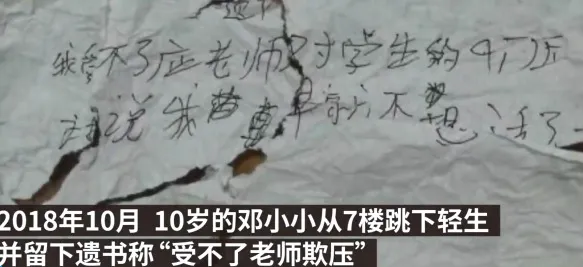 遗书
我受不了应老师对学生的欺压
再说我早就不想活了
2018年10月 10岁的邓小小从7楼跳下轻生
并留下遗书称“受不了老师欺压”